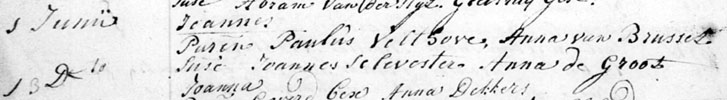 Susc Abram Van der
1 Junii Joannes
Paren Paulus Velthove, Anna van Brussel.
Susc Joannes Selevester Anna de Groot
13 D<sup>to</sup> Joanna
Anna Dekkers